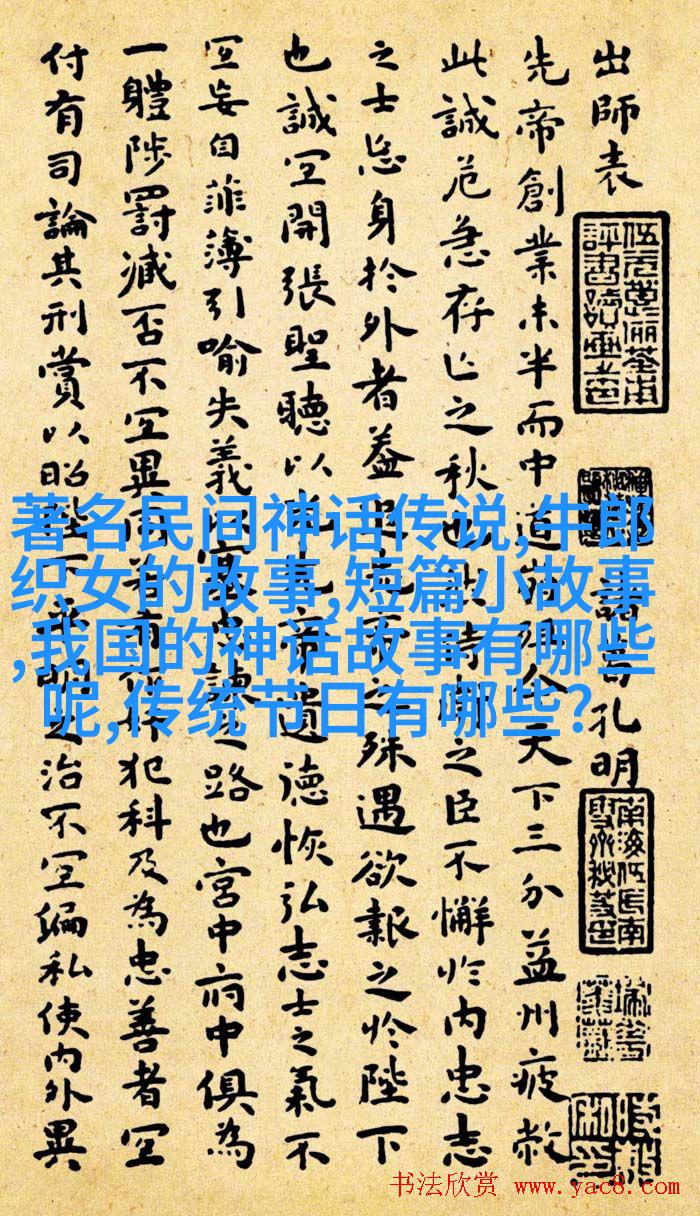 出師表
孔明
先帝創業未半而中道今天下三分益州疲敝
此誠危急存亡之秋也侍衛之臣不懈於內忠志
之士忘身於外者蓋追先帝之殊遇欲報之於陛下
也誠宜開張聖聽以光先帝遺德恢弘志士之氣不
宜妄自菲薄引喻失義以塞忠諫之路也宮中府中俱為
一體陟罰臧否不宜異同若有作奸犯科及為忠善者宜
付有司論其刑賞以昭陛下平明之治不宜偏私使內外異
著名民间神话传说,牛郎
织女的故事,短篇小故事
,我国的神话故事有哪些
呢,传统节日有哪些?
书法欣赏 www.yac8.com